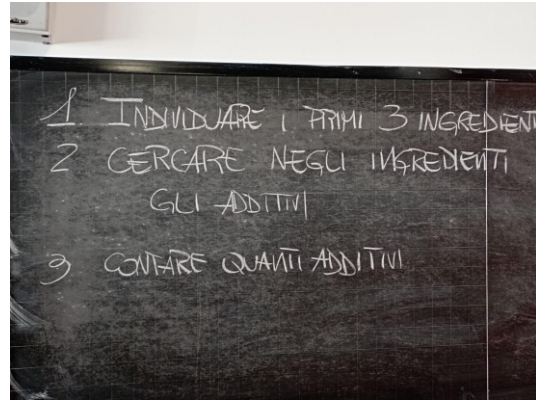 1 INDIVIDUARE I PRIMI 3 INGREDIENTI
2 CERCARE NEGLI INGREDIENTI
GLI ADDITIVI
3 CONTARE QUANTI ADDITIVI